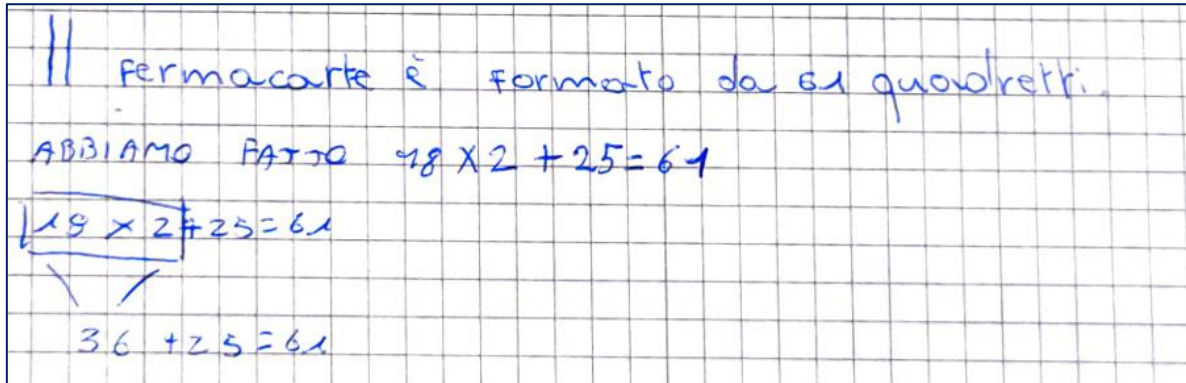 Il fermacarte è formato da 61 quadretti.
ABBIAMO FATTO 18 X 2 + 25 = 61
18 × 2 + 25 = 61
36 + 25 = 61